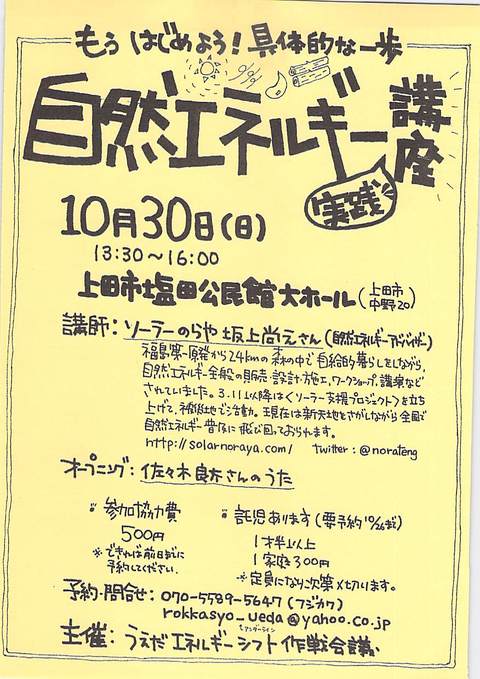 もう はじめよう！具体的な一歩
自然エネルギー講座
実践
10月30日(日)
13:30～16:00
上田市塩田公民館大ホール(上田市中野20)
講師：ソーラーのらや 坂上尚えさん(自然エネルギーアドバイザー)
福島第一原発から24kmの森の中で自給的暮らしをしながら,
自然エネルギー全般の販売・設計・施工, ワークショップ, 講演など
されていました。3.11以降は〈ソーラー支援プロジェクト〉を立ち
上げて、被災地で活動。現在は新天地をさがしながら全国で
自然エネルギー普及に飛び回っておられます。
http://solarnoraya.com/ twitter:@norateng
オープニング：佐々木良太さんのうた
参加協力費
500円
※できれば前日までに
予約してください。
託児あります(要予約10/26まで)
1才半以上
1家庭300円
※定員になり次第〆切ります。
予約・問合せ：070-5589-5647(フジカワ)
rokkasyo_ueda@yahoo.co.jp
↳アンダーライン
主催：うえだエネルギーシフト作戦会議